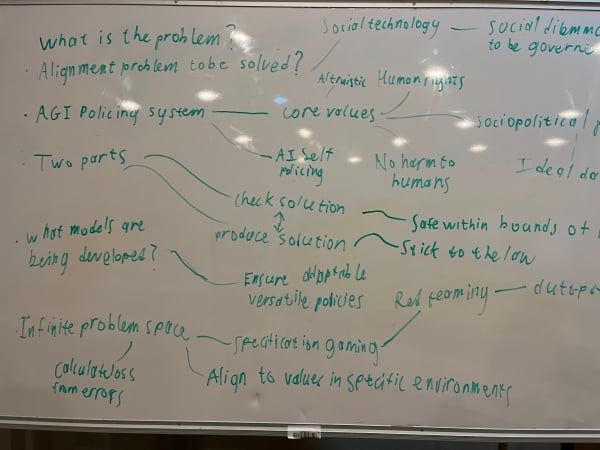 What is the problem?
Social technology — social dilemm
to be govern
· Alignment problem to be solved?
Altruistic Human rights
· AGI Policing system — core values — sociopolitical
· Two parts
AI Self
Policing
No harm to
humans
Ideal da
check solution — Safe within bounds of
produce solution — Stick to the law
· What models are
being developed?
Ensure adaptable
versatile policies
Red teaming —
· Infinite problem space — specification gaming
Calculate loss
from errors
Align to values in specific environments